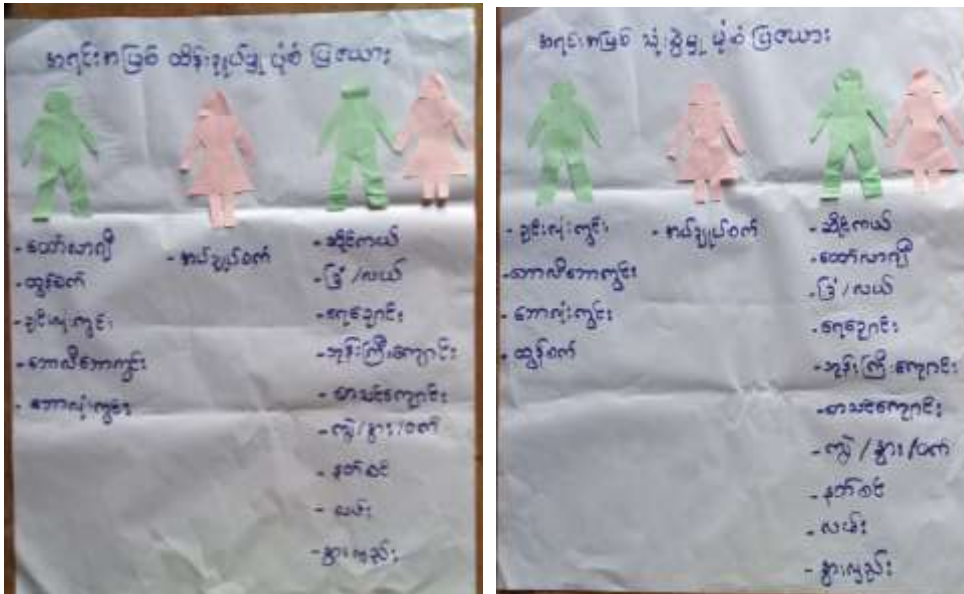 အရင်းအမြစ် ထိန်းချုပ်မှု ပုံစံ ပြဇယား
- ထော်လာဂျီ
- ထွန်စက်
- ခြင်းလုံးကွင်း
- ဘောလီဘောကွင်း
- ဘောလုံးကွင်း
- အပ်ချုပ်စက်
- ဆိုင်ကယ်
- ခြံ/လယ်
- ရေချောင်း
- ဘုန်းကြီးကျောင်း
- စာသင်ကျောင်း
- ကျွဲ/နွား/ဝက်
- နတ်စင်
- လမ်း
- နွားလှည်း
အရင်းအမြစ် သုံးစွဲမှု ပုံစံ ပြဇယား
- ခြင်းလုံးကွင်း
- ဘောလီဘောကွင်း
- ဘောလုံးကွင်း
- ထွန်စက်
- အပ်ချုပ်စက်
- ဆိုင်ကယ်
- ထော်လာဂျီ
- ခြံ/လယ်
- ရေချောင်း
- ဘုန်းကြီးကျောင်း
- စာသင်ကျောင်း
- ကျွဲ/နွား/ဝက်
- နတ်စင်
- လမ်း
- နွားလှည်း